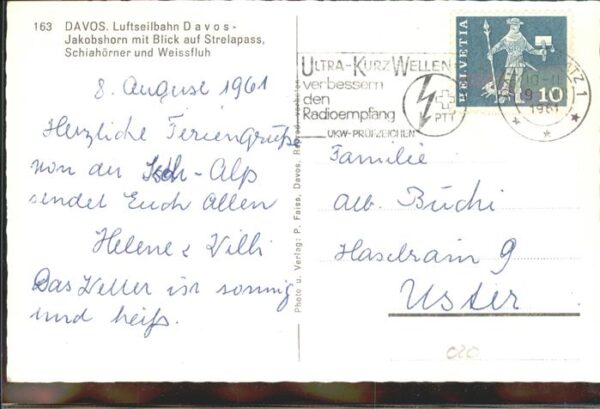 163 DAVOS. Luftseilbahn Davos-
Jakobshorn mit Blick auf Strelapass,
Schiahörner und Weissfluh
8. August 1961
Herzliche Feriengrüße
von der Isch-Alp
sendet Euch Allen
Helene & Willi
Das Wetter ist sonnig
und heiß.
Photo u. Verlag: P. Faiss, Davos.
ULTRA-KURZWELLEN
verbessern
den
Radioempfang
UKW-PRÜFZEICHEN
PTT
HELVETIA
10
TZ 1
1961
Familie
Alb. Büchi
Haselrain 9
Uster